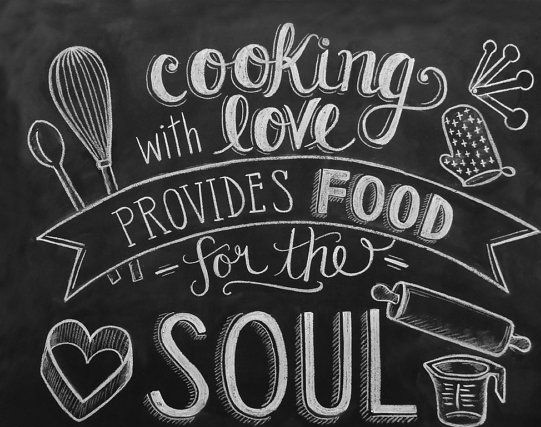 cooking
with love
PROVIDES FOOD
for the
SOUL